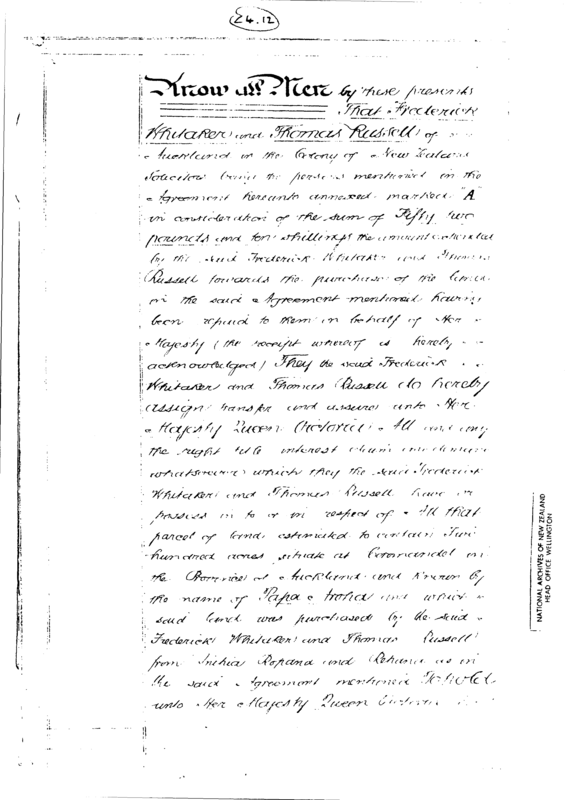 24.12
Know all Men by these presents
That Frederick
Whitaker and Thomas Russell of
Auckland in the Colony of New Zealand
Solicitors being the persons mentioned in the
Agreement hereunto annexed marked "A"
in consideration of the sum of Fifty two
pounds and ten shillings the amount advanced
by the said Frederick Whitaker and Thomas
Russell towards the purchase of the land
in the said Agreement mentioned having
been repaid to them in behalf of Her
Majesty (the receipt whereof is hereby
acknowledged) They the said Frederick
Whitaker and Thomas Russell do hereby
assign transfer and assure unto Her
Majesty Queen Victoria All and any
the right title interest claim and demand
whatsoever which they the said Frederick
Whitaker and Thomas Russell have or
possess in to or in respect of All that
parcel of land estimated to contain Two
hundred acres situate at Coromandel in
the Province of Auckland and known by
the name of Papa Aroha and which
said land was purchased by the said
Frederick Whitaker and Thomas Russell
from Ropana and as in
the said Agreement mentioned To hold
unto Her Majesty Queen Victoria
NATIONAL ARCHIVES OF NEW ZEALAND
HEAD OFFICE WELLINGTON